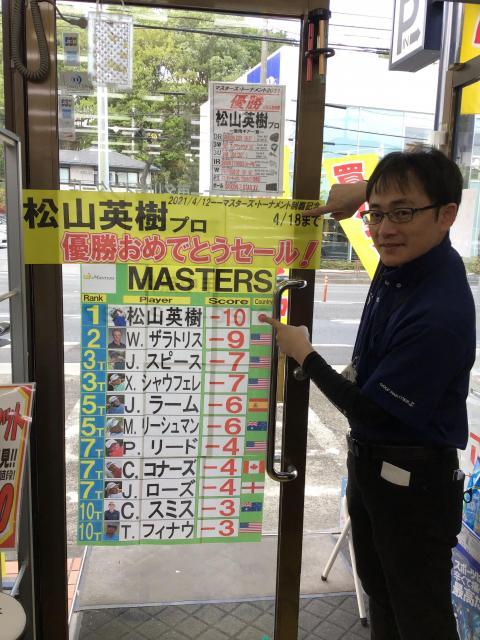 P
IN
マスターズ・トーナメント2021
優勝
松山英樹プロ
DR
3W
5W
UT
IR
W
2021/4/12―マスターズ・トーナメント制覇記念
4/18まで
松山英樹プロ
優勝おめでとうセール!
MASTERS
Rank Player Score Country
1 松山英樹 -10
2 W. ザラトリス -9
3T J. スピース -7
3T X. シャウフェレ -7
5T J. ラーム -6
5T M. リーシュマン -6
7T P. リード -4
7T C. コナーズ -4
7T J. ローズ -4
10T C. スミス -3
10T T. フィナウ -3